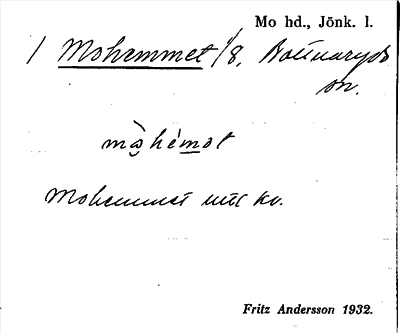 Mo hd., Jönk. l.
/ Mohammet 1/8, Bottnaryds
sn.
måhémot
Mohammet utt kv.
Fritz Andersson 1932.